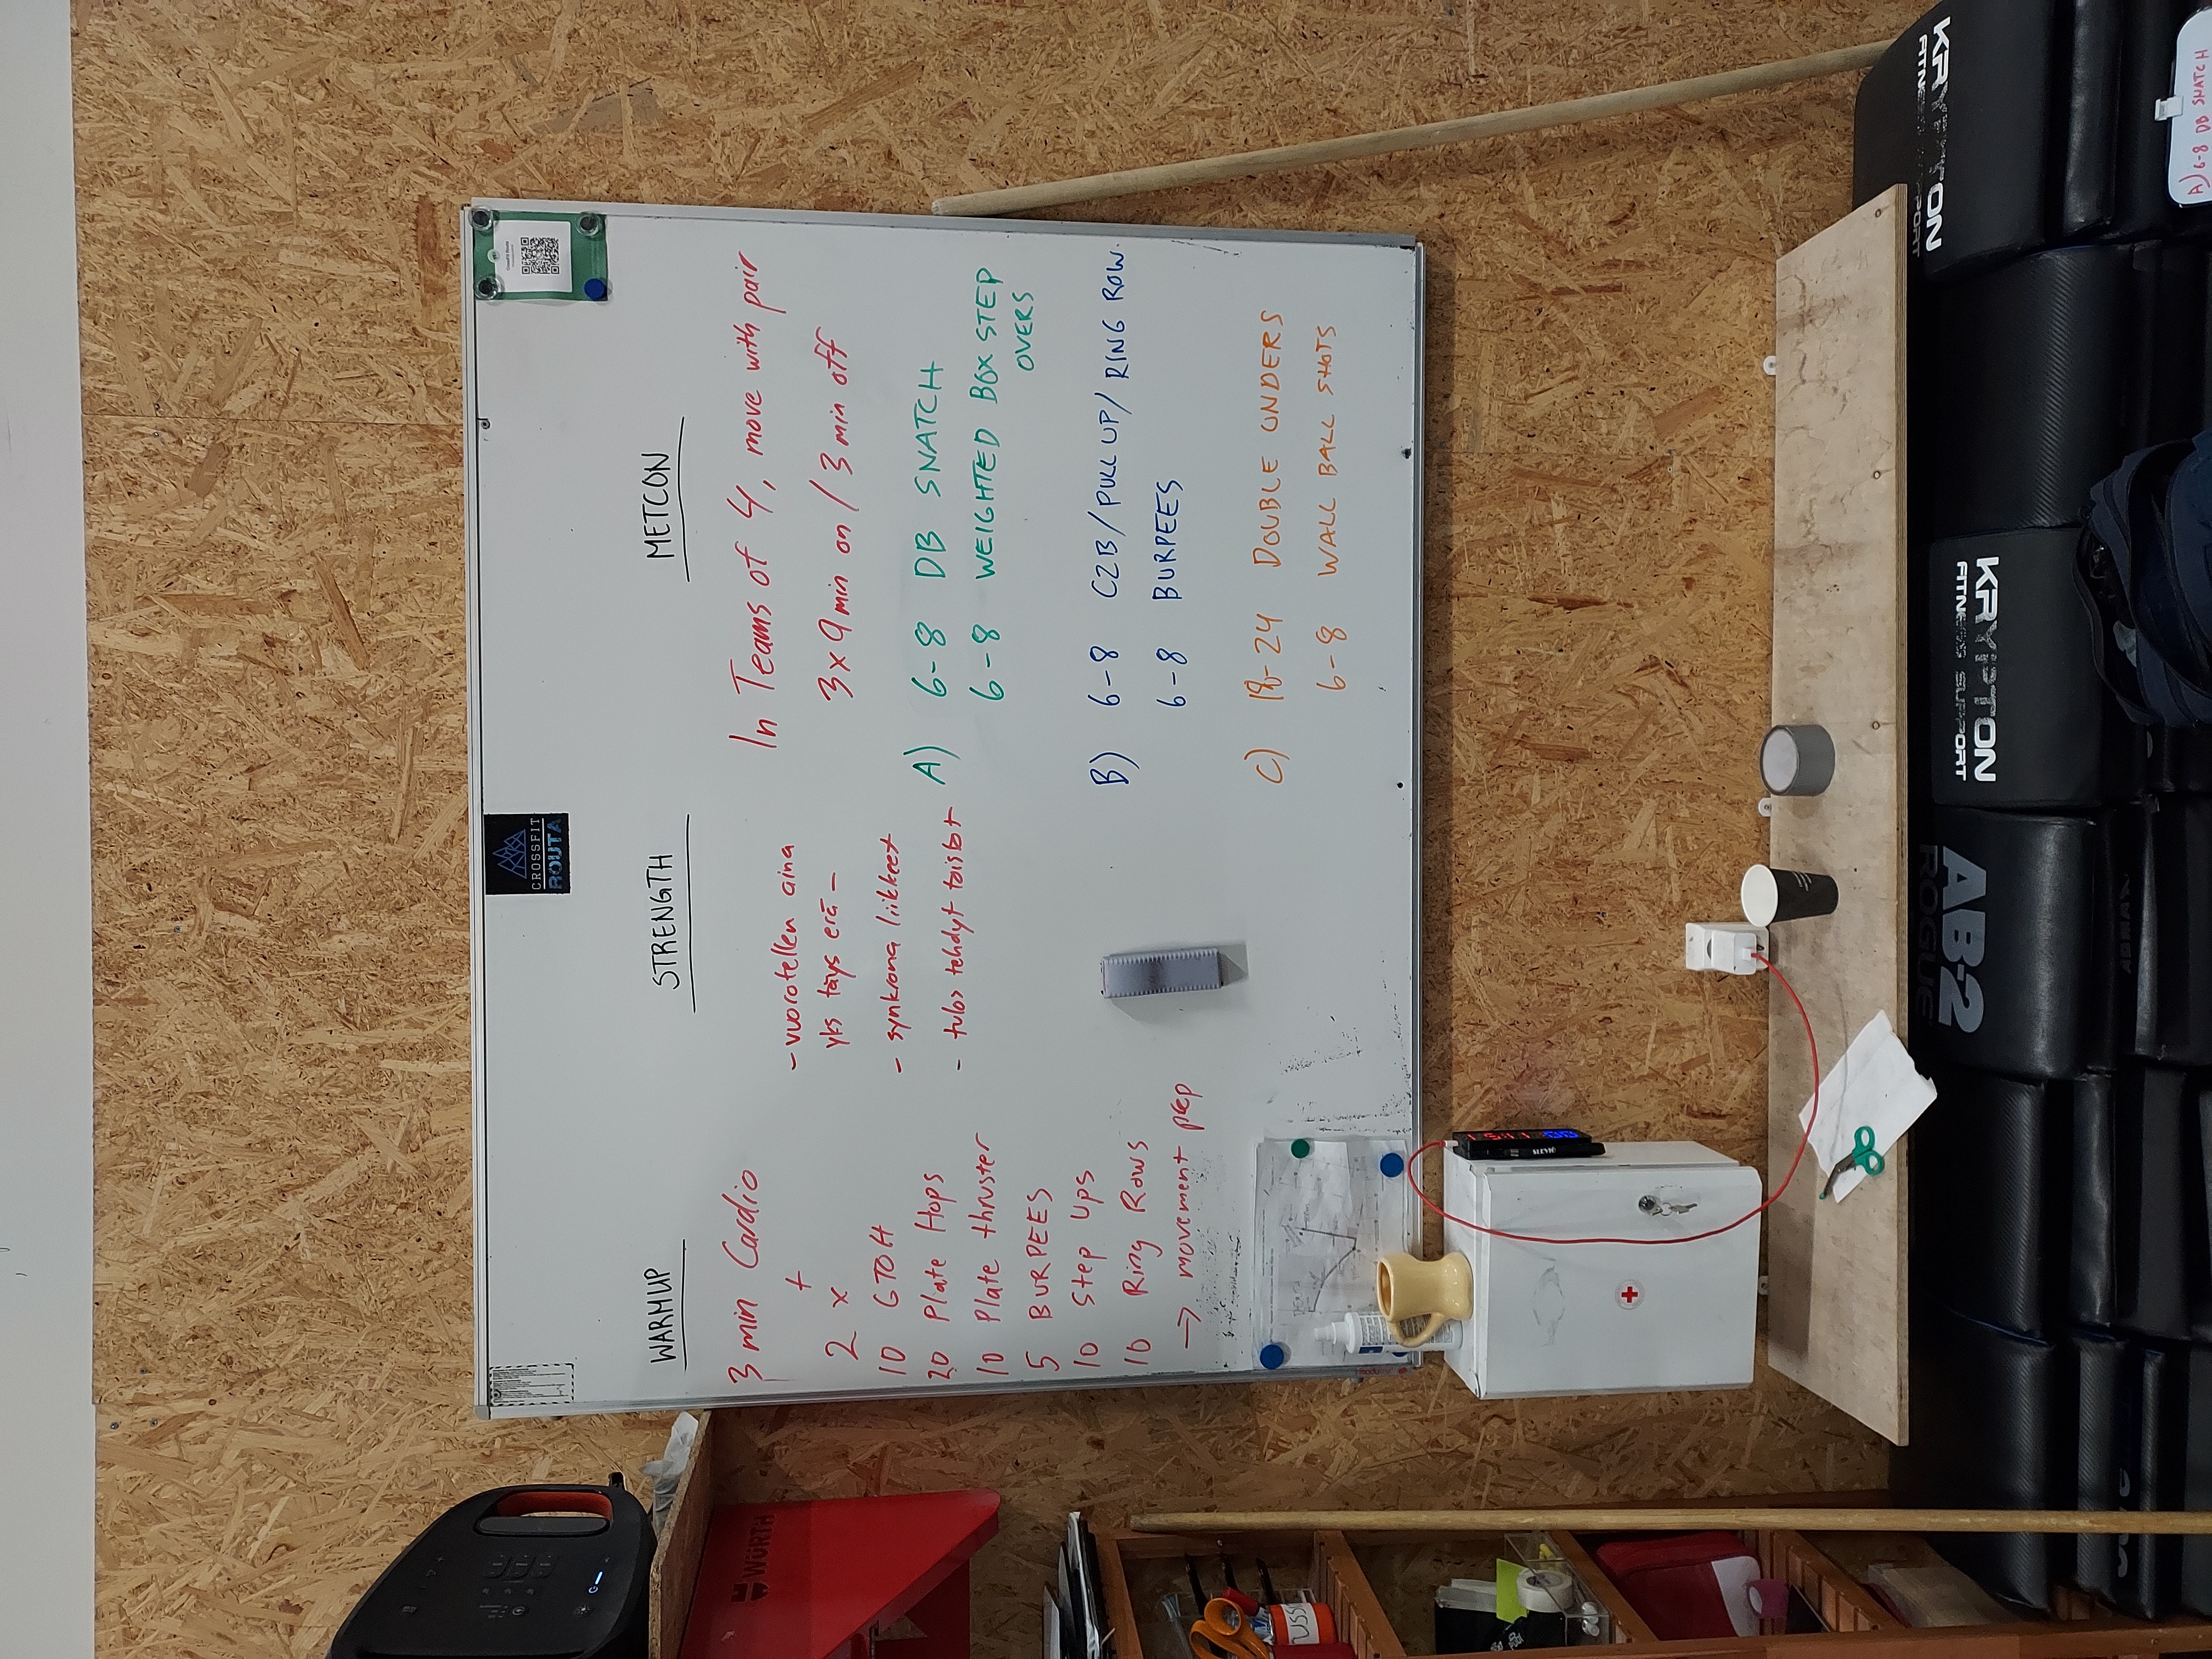 CROSSFIT
ROUTA
WARMUP
3 min Cardio
+
2 x
10 GTOH
20 Plate Hops
10 Plate thruster
5 BURPEES
10 Step Ups
10 Ring Rows
→ movement prep
STRENGTH
- vuorotellen aina
yks täys erä -
- synkrona liikkeet
- tulos tehdyt toistot
METCON
In Teams of 4, move with pair
3 x 9 min on / 3 min off
A) 6-8 DB SNATCH
6-8 WEIGHTED BOX STEP
OVERS
B) 6-8 C2B/PULL UP/RING ROW
6-8 BURPEES
C) 18-24 DOUBLE UNDERS
6-8 WALL BALL SHOTS
WÜRTH
KRYPTON
FITNESS SUPPORT
KRYPTON
FITNESS SUPPORT
AB-2
ROGUE
A) 6-8 DB SNATCH